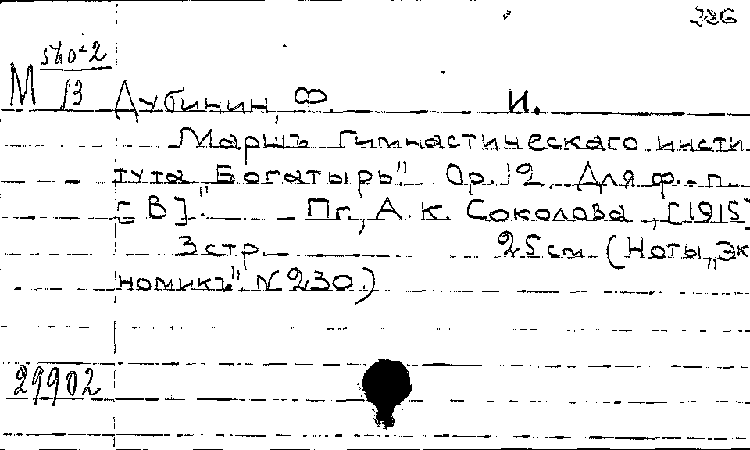 226
М 560-2
13
Дубинин, Ф. И.
Маршъ Гимнастическаго инсти
тута Богатырь". Ор. 12. Для ф.-п.
[В]." Пг., А. К. Соколова, [1915]
3 стр. 25 см. (Ноты „Эк
номикъ" № 230.)
29902